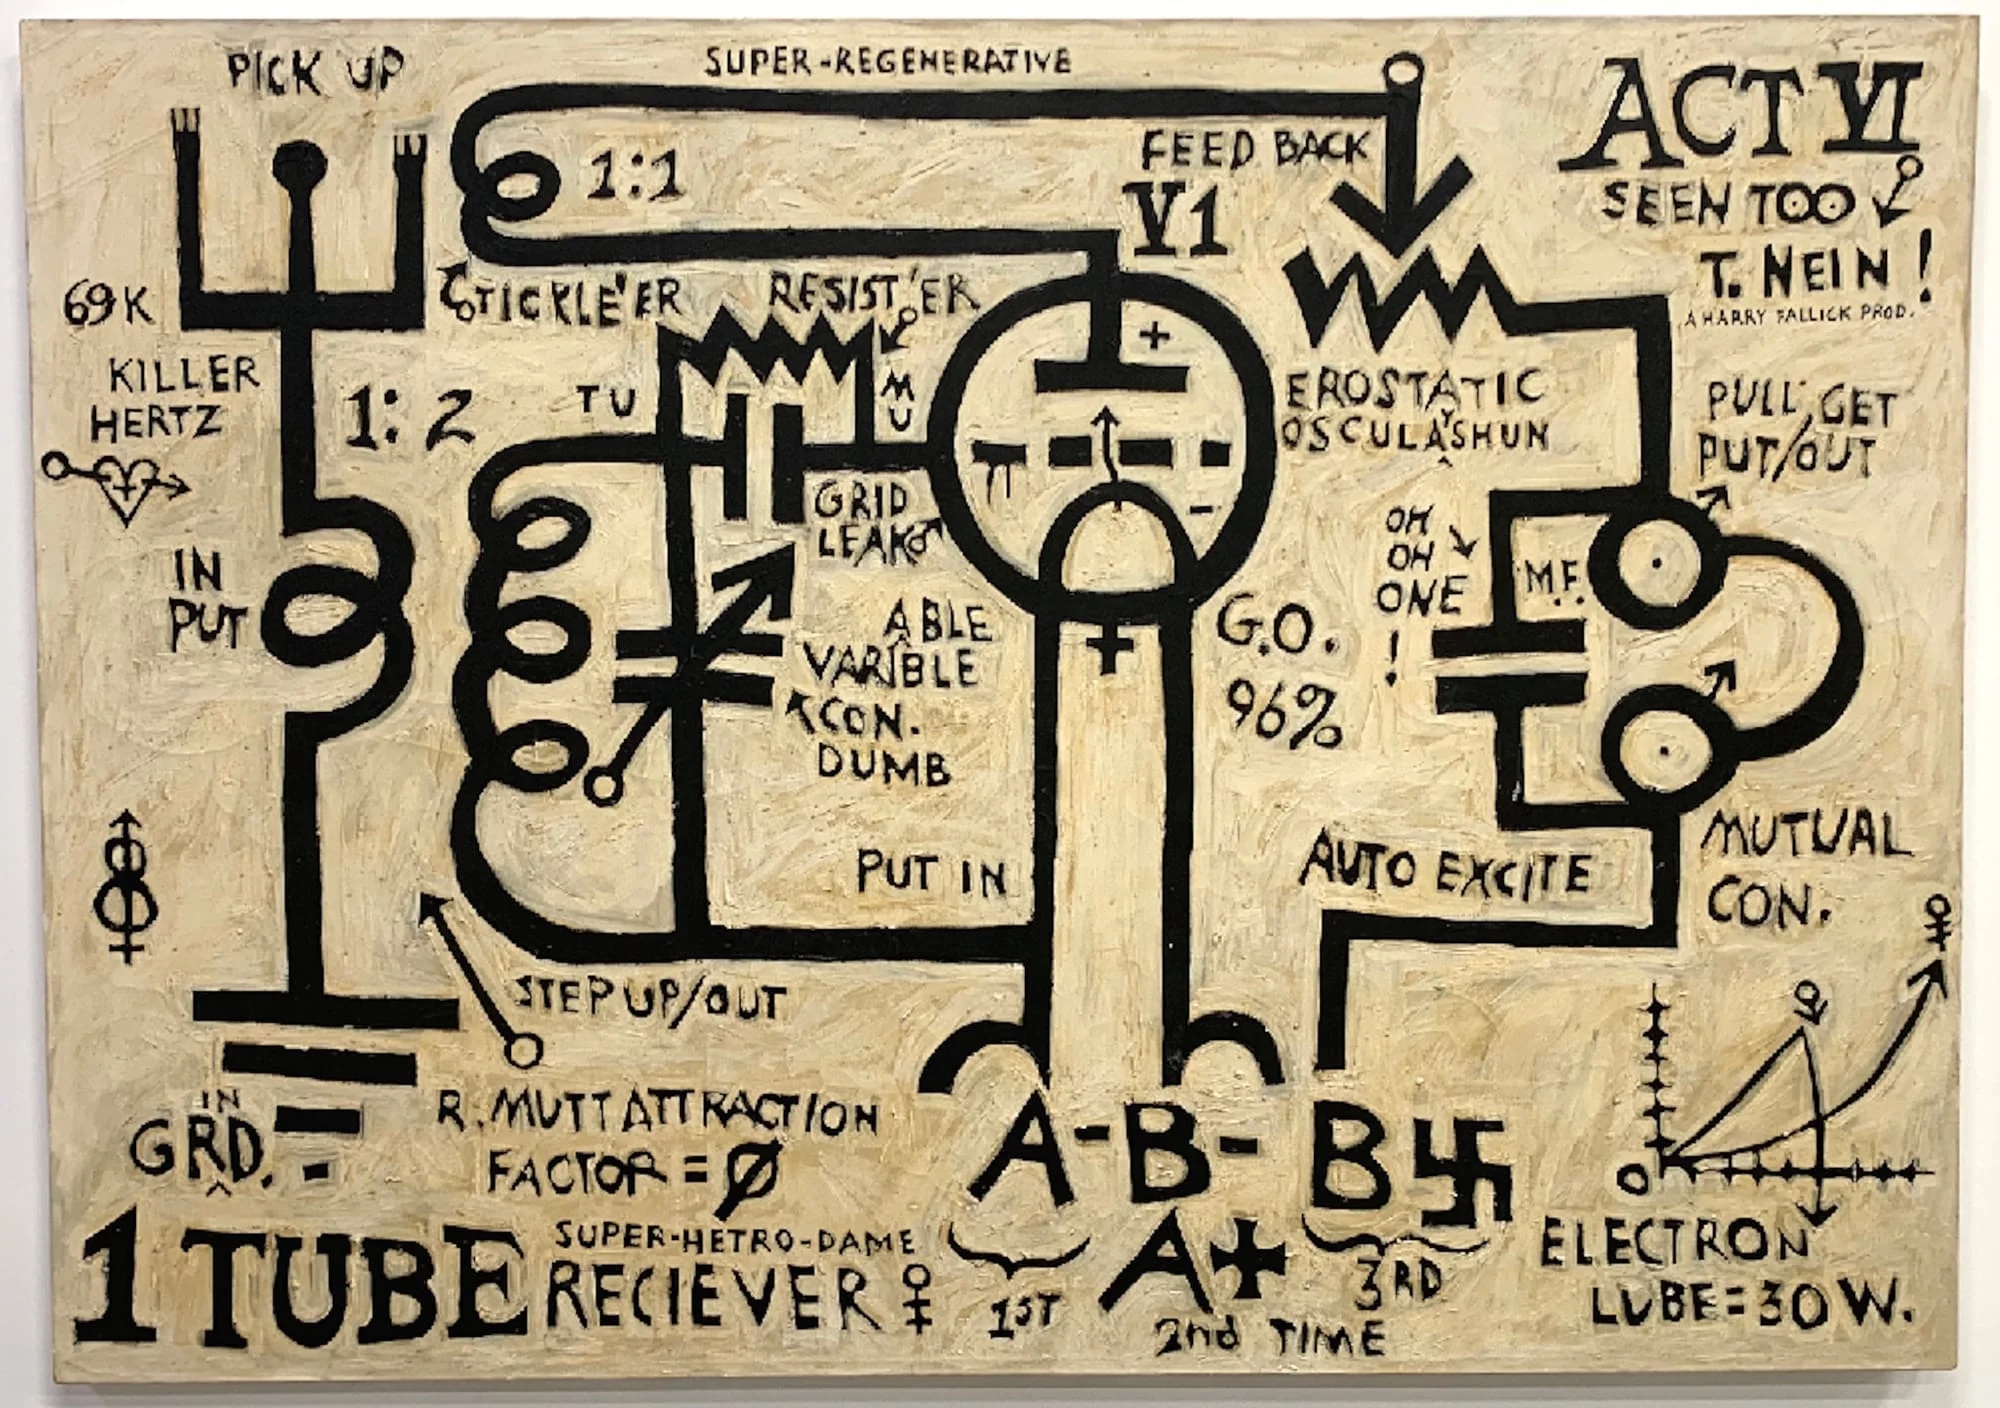 PICK UP
SUPER-REGENERATIVE
ACT VI
SEEN TOO
T. NEIN!
A HARRY FALLICK PROD.
FEED BACK
V1
1:1
TICKLE'ER
RESIST'ER
69K
KILLER
HERTZ
1:2
TU
MU
+
GRID
LEAK
-
EROSTATIC
OSCULAYSHUN
PULL, GET
PUT/OUT
OH
OH
ONE
!
M.F.
IN
PUT
ABLE
VARIBLE
CON.
DUMB
+
G.O.
96%
PUT IN
AUTO EXCITE
MUTUAL
CON.
STEP UP/OUT
OH
IN
GRD.
R. MUTT ATTRACTION
FACTOR = Ø
A- B- B卐
A+
1ST
2nd TIME
3RD
O
ELECTRON
LUBE = 30 W.
1 TUBE
SUPER-HETRO-DAME
RECIEVER